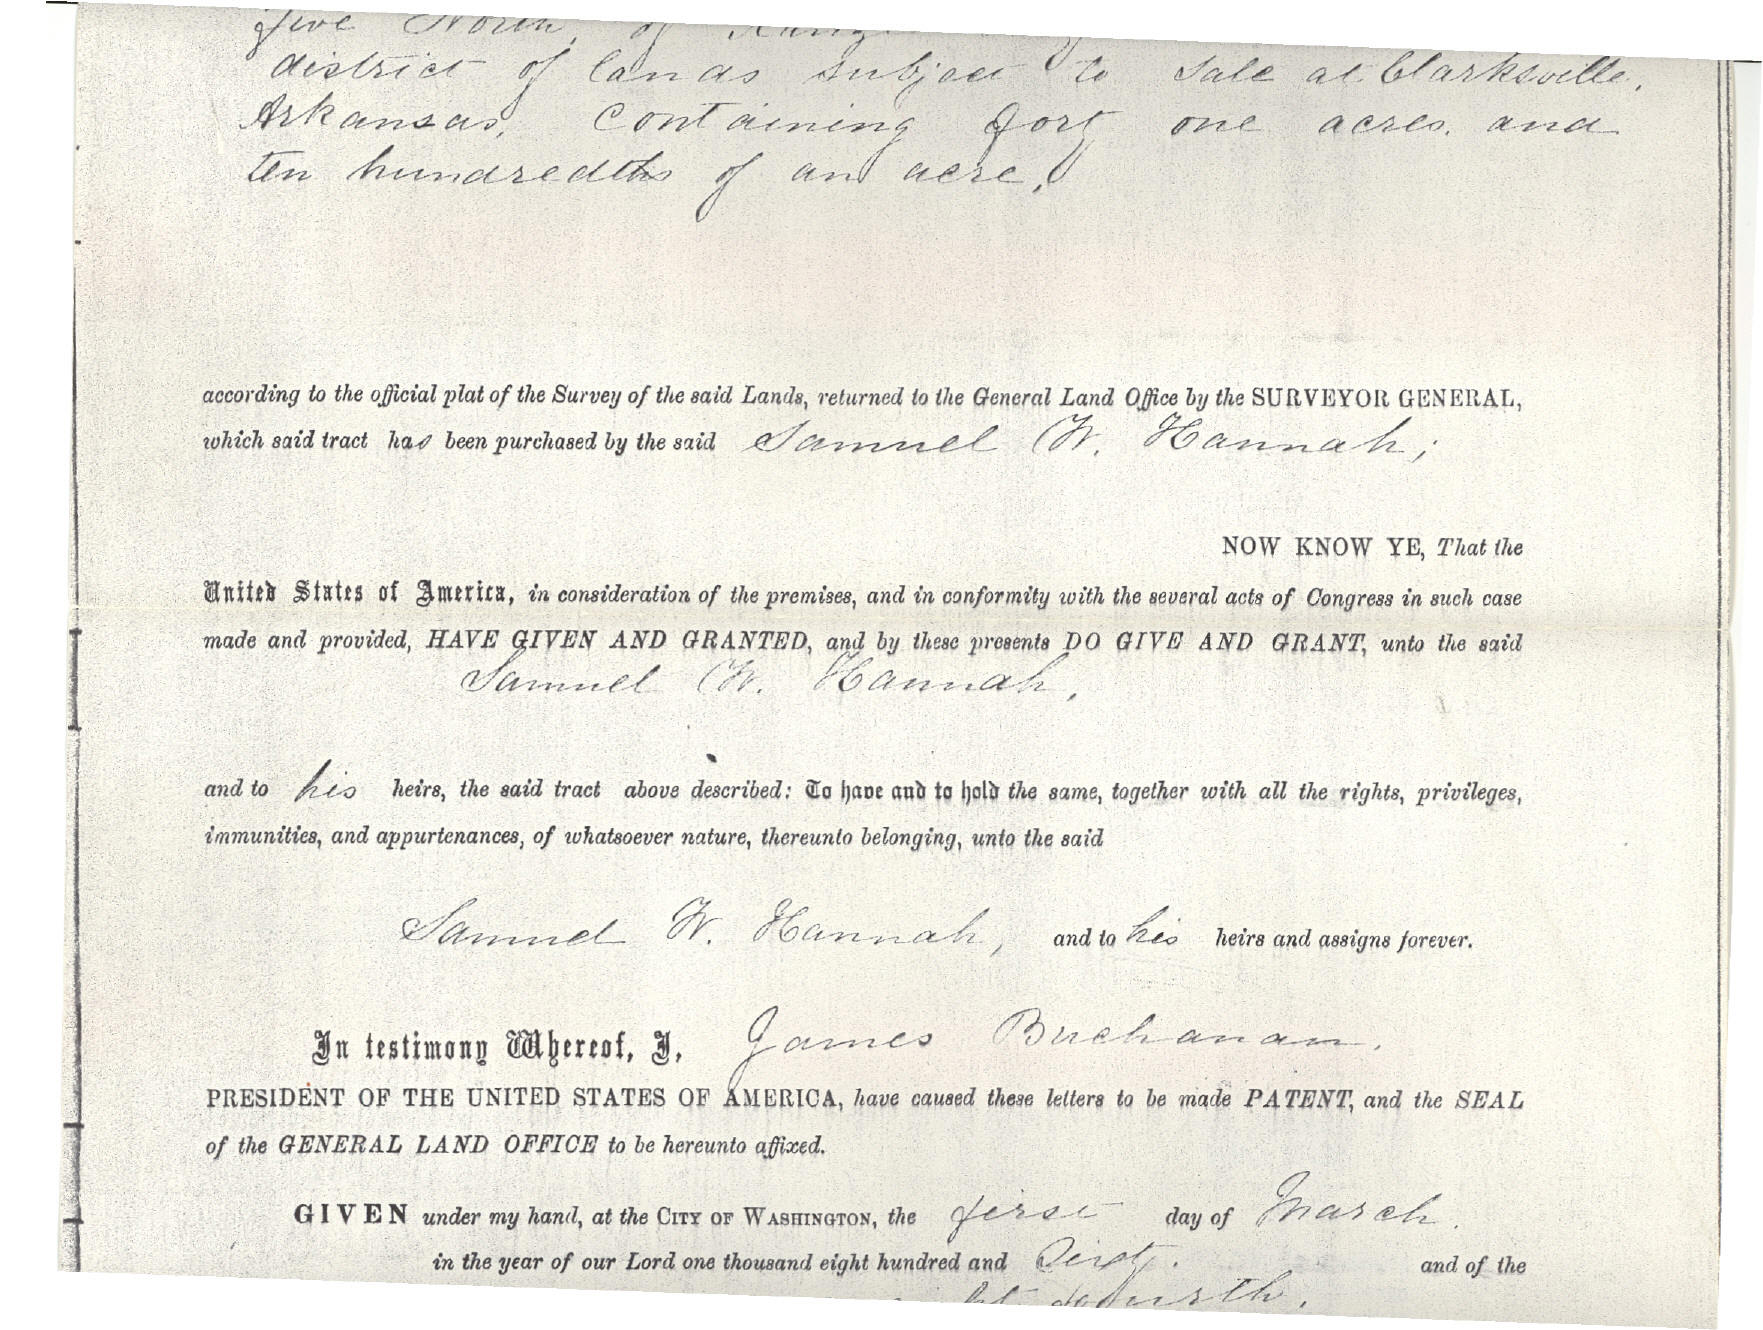 five North, of Range
district of lands subject to sale at Clarksville,
Arkansas, containing forty one acres, and
ten hundredths of an acre,
according to the official plat of the Survey of the said Lands, returned to the General Land Office by the SURVEYOR GENERAL,
which said tract has been purchased by the said Samuel W. Hannah;
NOW KNOW YE, That the
United States of America, in consideration of the premises, and in conformity with the several acts of Congress in such case
made and provided, HAVE GIVEN AND GRANTED, and by these presents DO GIVE AND GRANT, unto the said
Samuel W. Hannah,
and to his heirs, the said tract above described: To have and to hold the same, together with all the rights, privileges,
immunities, and appurtenances, of whatsoever nature, thereunto belonging, unto the said
Samuel W. Hannah, and to his heirs and assigns forever.
In testimony Whereof, I, James Buchanan,
PRESIDENT OF THE UNITED STATES OF AMERICA, have caused these letters to be made PATENT, and the SEAL
of the GENERAL LAND OFFICE to be hereunto affixed.
GIVEN under my hand, at the CITY OF WASHINGTON, the first day of March,
in the year of our Lord one thousand eight hundred and Sixty, and of the
fourth.